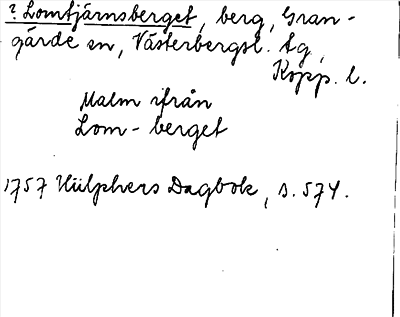 ? Lomtjärnsberget, berg, Gran-
gärde sn, Västerbergsl. tg,
Kopp. l.
Malm ifrån
Lom-berget
1757 Hülphers Dagbok, s. 574.